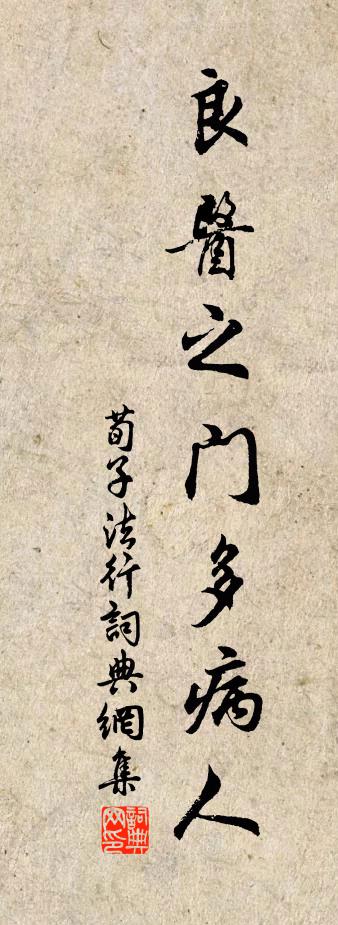 良醫之門多病人
荀子法行詞典網集
詞典网印